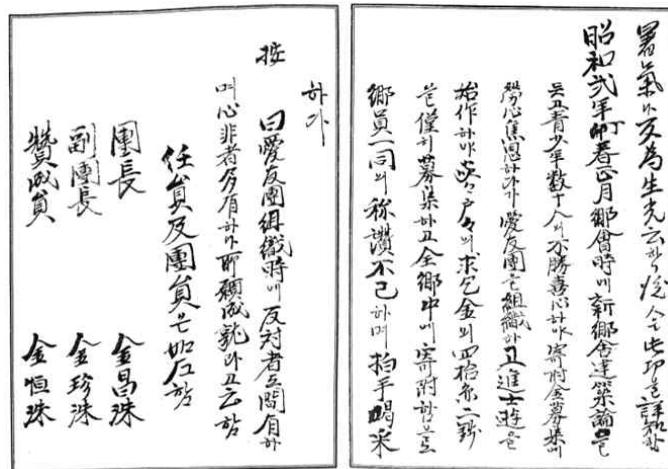 昭和貳年丁卯春正月鄕會時에新鄕舍建築論을
듯고靑少年數十人이不勝喜心하야寄附金募集에
勞心焦思하다가愛友團을組織하고進士遊을
始作하야家々戶々의求乞金이四拾余二錢
을僅히募集하고全鄕中에寄附함으로
鄕員一同의稱讚不已하며拍手喝采
하다
按
曰愛友團組織時에反対者도間有하
며心非者多有하나所願成就라고云함
任員及團員은如左함
團長 金昌洙
副團長 金珍洙
贊成員 金恒洙